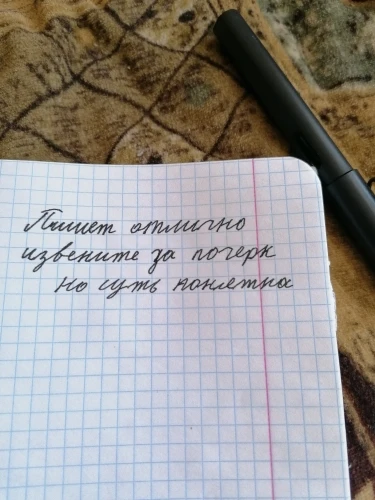 Пишет отлично
извените за почерк
но суть понятна